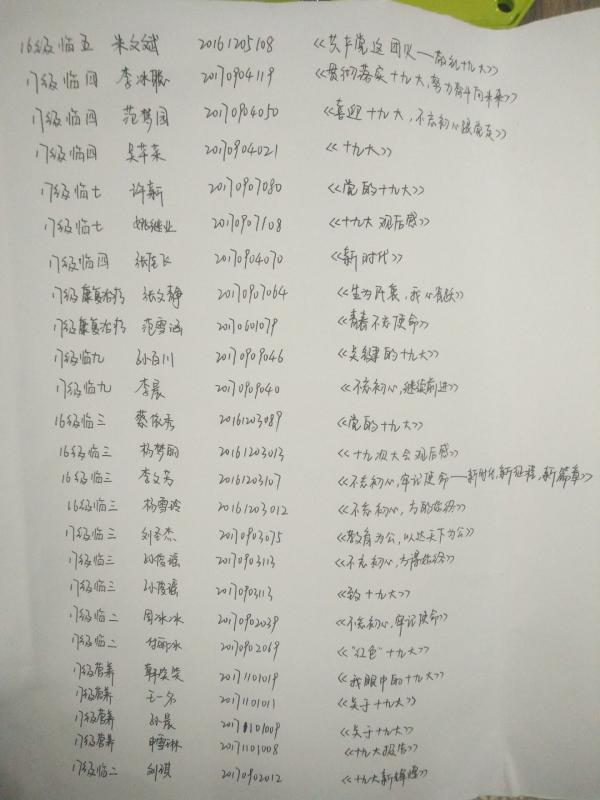 16级临五 朱文斌 20161205108 《共产党这团火——献礼十九大》
17级临四 李冰聪 20170904119 《贯彻落实十九大,努力奋斗向未来》
17级临四 范梦园 20170904050 《喜迎十九大,不忘初心跟党走》
17级临四 吴苹苹 20170904021 《十九大》
17级临七 许新 20170907080 《党的十九大》
17级临七 姚继业 20170907108 《十九大观后感》
17级临四 张庭飞 20170904070 《新时代》
17级康复治疗 张文静 20170907064 《生为民衷,我心有跃》
17级康复治疗 范雪涵 20170601079 《青春不忘使命》
17级临九 孙百川 20170909046 《关键的十九大》
17级临九 李晨 20170909040 《不忘初心,继续前进》
16级临三 蔡依秀 20161203089 《党的十九大》
16级临三 杨梦丽 20161203013 《十九版大会观后感》
16级临三 李文芳 20161203107 《不忘初心,牢记使命——新时代,新征程,新篇章》
16级临三 杨雪玲 20161203012 《不忘初心,方的始终》
17级临三 刘圣杰 20170903075 《教育为公,以达天下为公》
17级临三 孙俊瑶 20170903113 《不忘初心,方得始终》
17级临三 孙俊瑶 20170903113 《致十九大》
17级临二 周冰冰 20170902039 《不忘初心,牢记使命》
17级临二 付丽冰 20170902069 《"红色"十九大》
17级营养 韩笑笑 20171101019 《我眼中的十九大》
17级营养 王一名 20171101011 《关于十九大》
17级营养 孙晨 20171101009 《关于十九大》
17级营养 申雪琳 20171101008 《十九大报告》
17级临二 刘琪 20170902012 《十九大新辉煌》